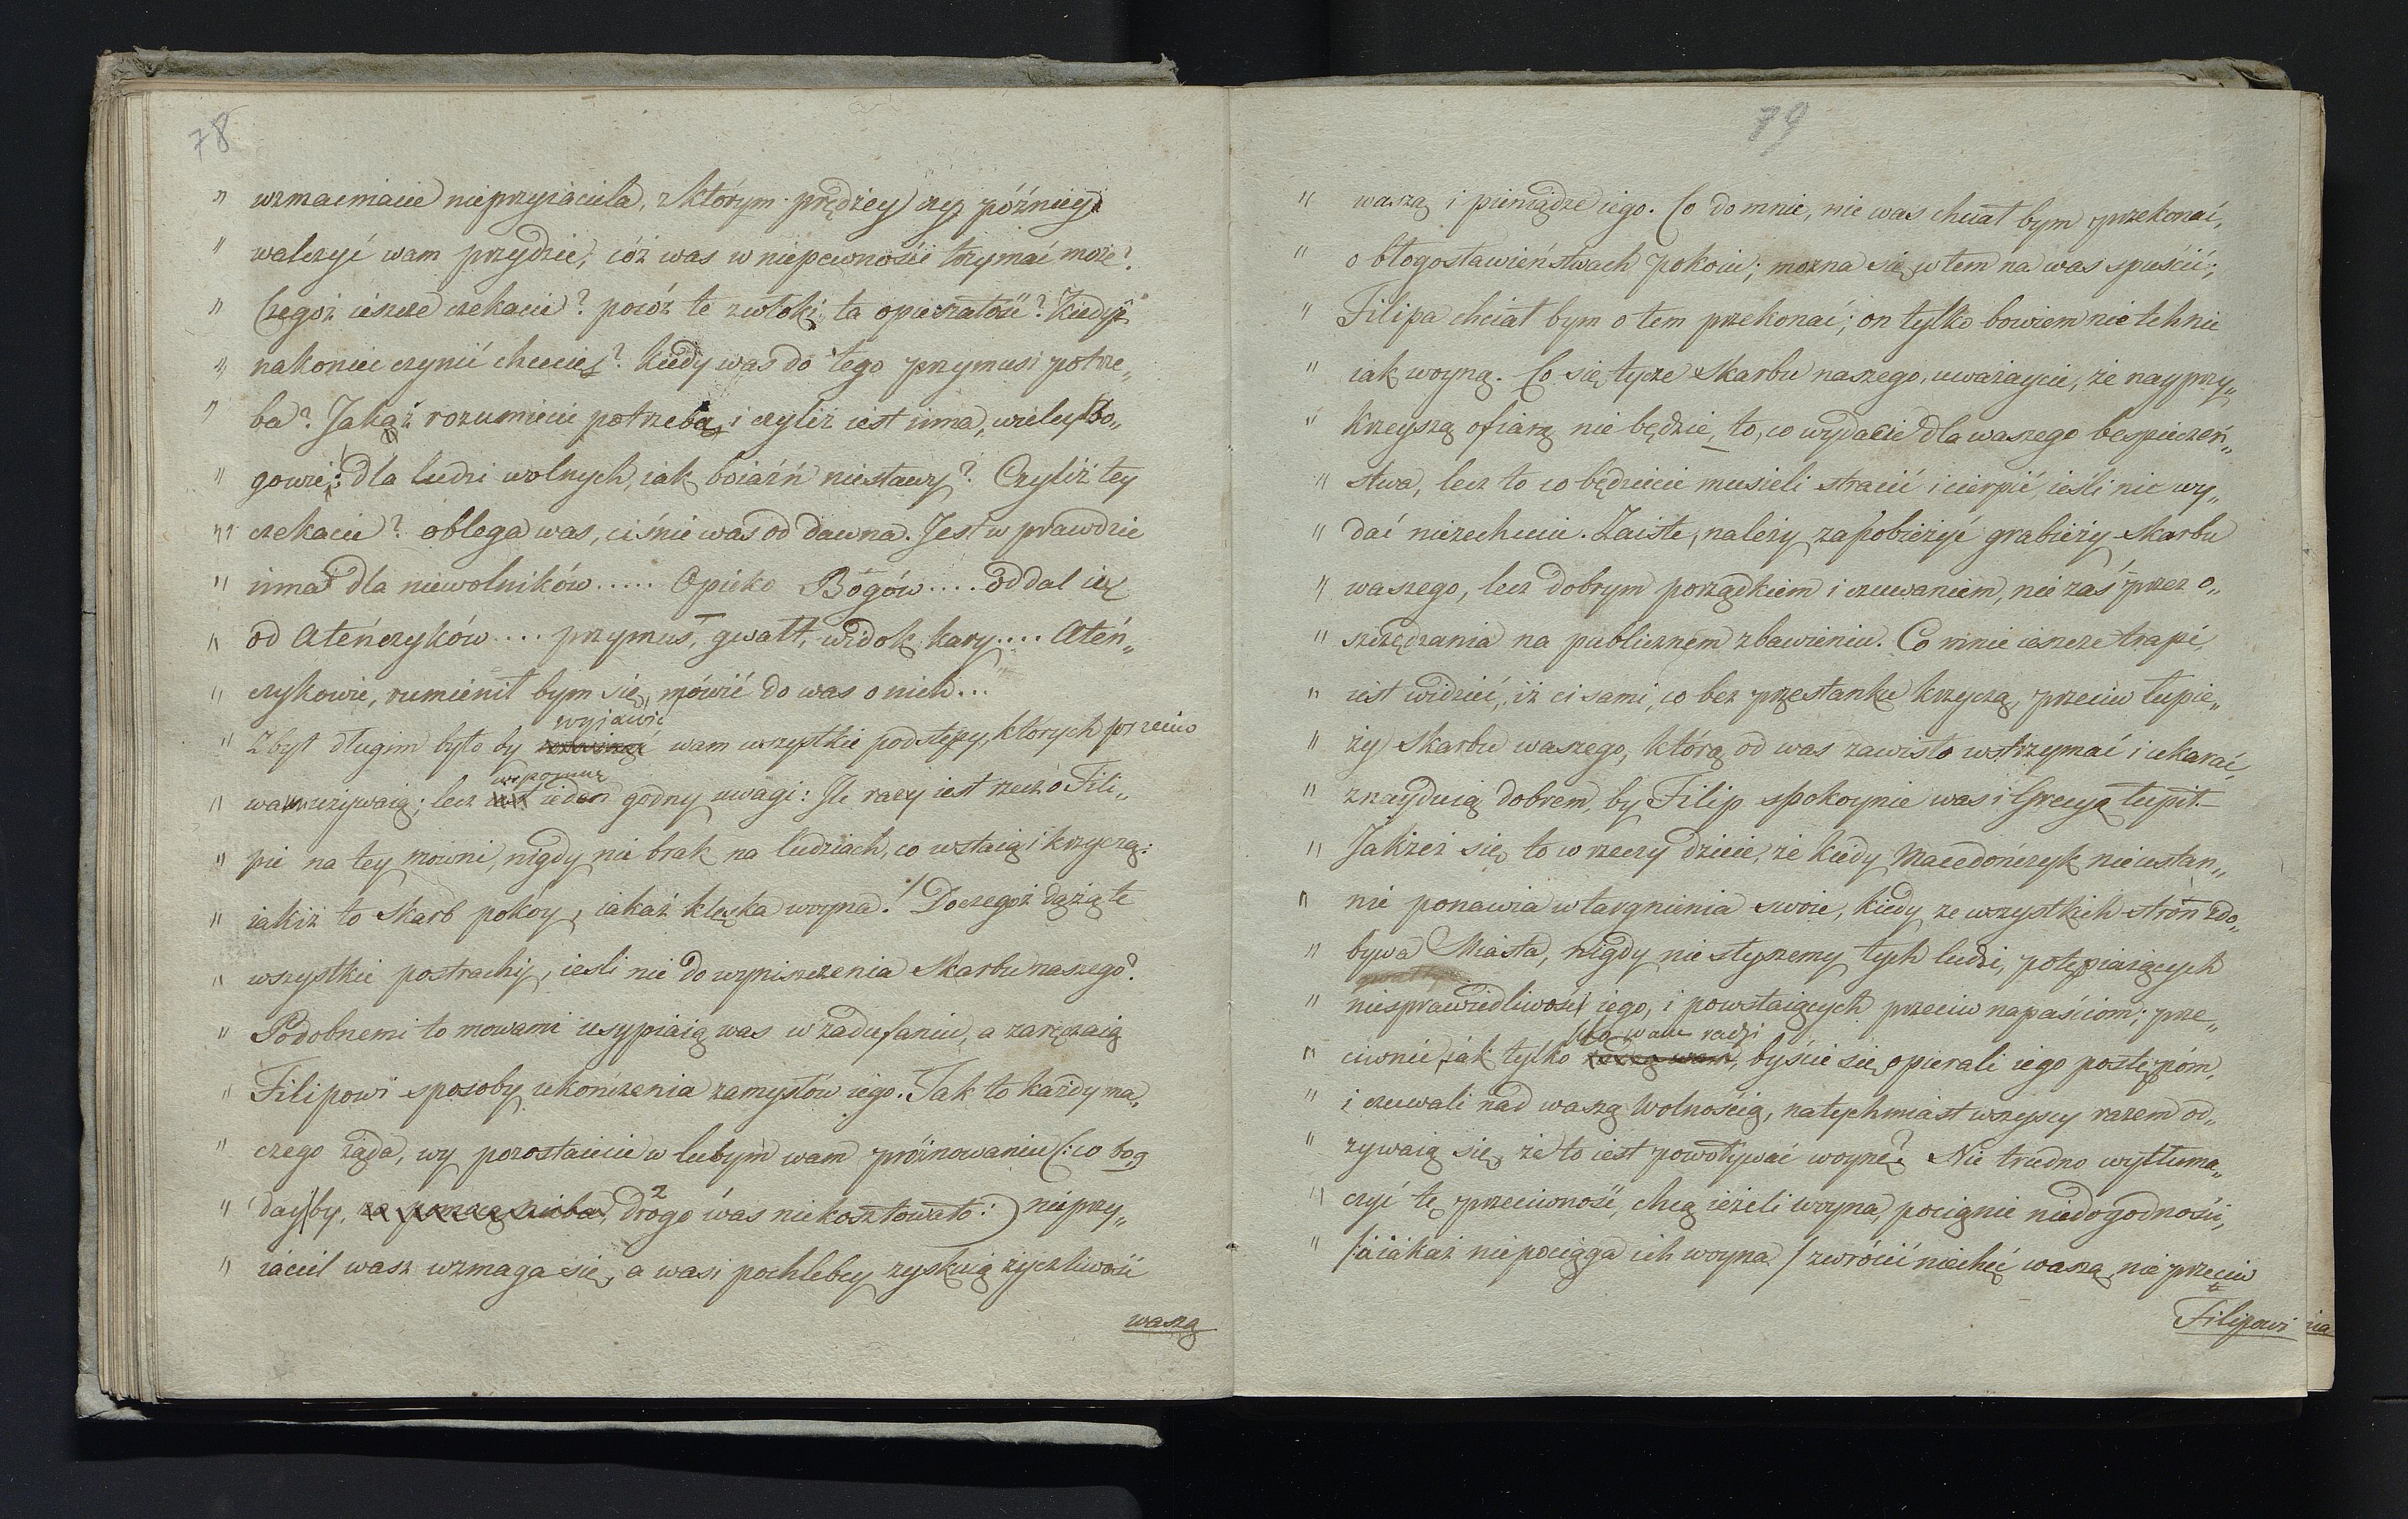 78
„ wzmacniacie nieprzyiaciela, z którym prędzey czy późniey
„ walczyć wam przydzie, cóż was w niepewności trzymać może?
„ Czegoż ieszcze czekacie? pocóż te zwłoki, ta opieszałość? Kiedyż
„ nakoniec czynić chcecie? kiedy was do tego przymusi potrze„
„ ba? Jakąż rozumiecie potrzebą, i czyliż iest inna, wielcy Bo„
„ gowie; dla ludzi wolnych, iak boiaźń niesławy? Czyliż tey
„ czekacie? oblega was, ciśnie was od dawna. Jest w prawdzie
„ inna dla niewolników..... Opieko Bogów.... oddal ią
„ od Ateńczyków.... przymus, gwałt, widok kary.... Ateń„
„ czykowie, rumienił bym się, mówić do was o nich...
wyiawić
„ Zbyt długim było by wam wszystkie podstępy, których przeciw
wspomnę
„ wam używaią; lecz ieden godny uwagi: Ile razy iest rzecz o Fili„
„ pie na tey mowni, nigdy nie brak na ludziach, co wstaią i krzyczą:
„ iakiż to skarb pokóy, iakaż klęska woyna! Doczegoż dążą te
„ wszystkie postrachy, iesli nie do wyniszczenia skarbu naszego?
„ Podobnemi to mowami usypiaią was w zadufaniu, a zaręczaią
„ Filipowi sposoby ukończenia zamysłów iego. Tak to każdy ma„
„ czego żąda, wy pozostaiecie w lubym wam próżnowaniu (: co bog
„ dayby, za pomocą nieba, drogo was niekosztowało :) nieprzy„
„ iaciel wasz wzmaga się, a wasi pochlebcy zyskuią życzliwość
waszą
79
„ waszą i pieniądze iego. Co do mnie, nie was chciał bym przekonać,
„ o błogosławieństwach pokoiu; można się w tem na was spuścić;
„ Filipa chciał bym o tem przekonać; on tylko bowiem nie tchnie
„ iak woyną. Co się tycze Skarbu naszego, uważaycie, że nayprzy„
„ krzeyszą ofiarą nie będzie, to, co wydacie dla waszego bespieczeń„
„ stwa, lecz to co będziecie musieli stracić i cierpić, ieśli nic wy„
„ dać niezechcecie. Zaiste, należy zapobieżyć grabieży Skarbu
„ waszego, lecz dobrym porządkiem i czuwaniem, nie zaś przez o„
„ szczędzania na publicznem zbawieniu. Co mnie ieszcze trapi,
„ iest widzieć, iż ci sami, co bez przestanku krzyczą, przeciw łupie„
„ ży Skarbu waszego, którą od was zawisło wstrzymać i ukarać,
„ znayduią dobrem, by Filip spokoynie was i Grecyą łupił.
„ Jakżeż się to w rzeczy dzieie, że kiedy Macedończyk nieustan„
„ nie ponawia wtargnienia swoie, kiedy ze wszystkich stron zdo„
„ bywa Miasta, nigdy nie słyszemy tych ludzi, potępiaiących
„ niesprawiedliwości iego, i powstaiących przeciw napaściom; prze„
kto wam radzi
„ ciwnie, iak tylko radzą wam, byście się opierali iego postępóm,
„ i czuwali nad waszą wolnością, natychmiast wszyscy razem od„
„ zywaią się, że to iest powoływać woynę? Nie trudno wytłuma„
„ czyć tę przeciwność, chcą ieżeli woyna, pociągnie niedogodności,
„ /a iakaż niepociąga ich woyna/ zwrócić niechęć waszą, nie przeciw
Filipowi